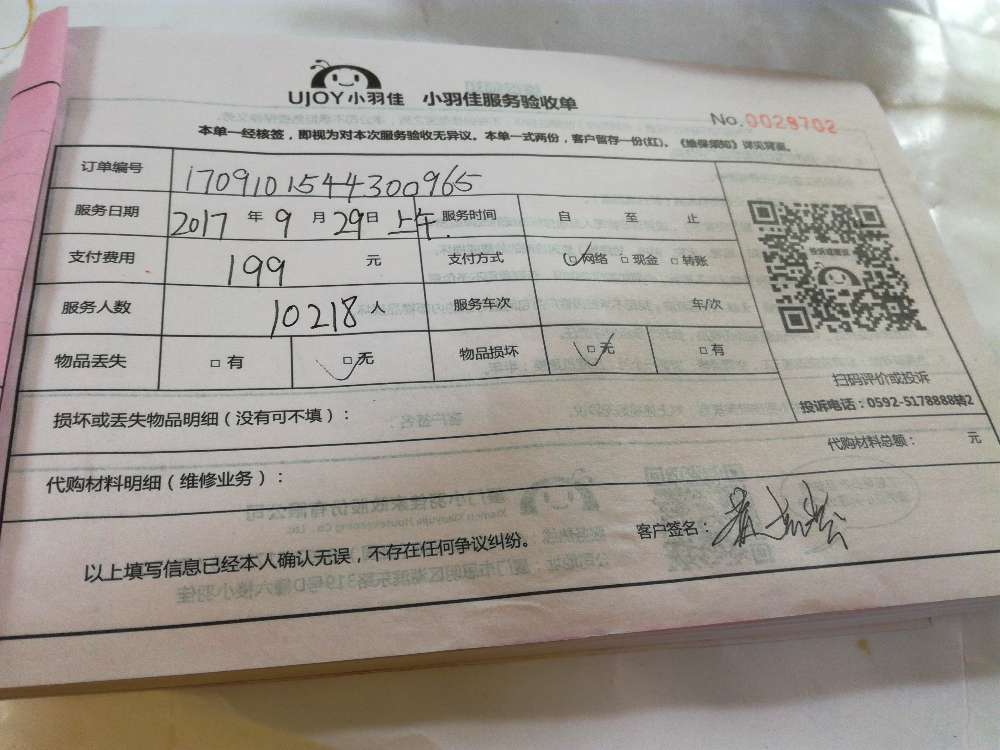 UJOY小羽佳 小羽佳服务验收单
No.0028702
本单一经核签，即视为对本次服务验收无异议。本单一式两份，客户留存一份(红)。《维保须知》详见背面。
订单编号 1709101544300965
服务日期 2017 年 9 月 29 日 上午 服务时间 自 至 止
支付费用 199 元 支付方式 □网络 □现金 □转账
服务人数 10218 人 服务车次 车/次
物品丢失 □有 □无 物品损坏 □无 □有
扫码评价或投诉
投诉电话：0592-5178888转2
损坏或丢失物品明细（没有可不填）：
代购材料总额： 元
代购材料明细（维修业务）：
客户签名：
以上填写信息已经本人确认无误，不存在任何争议纠纷。